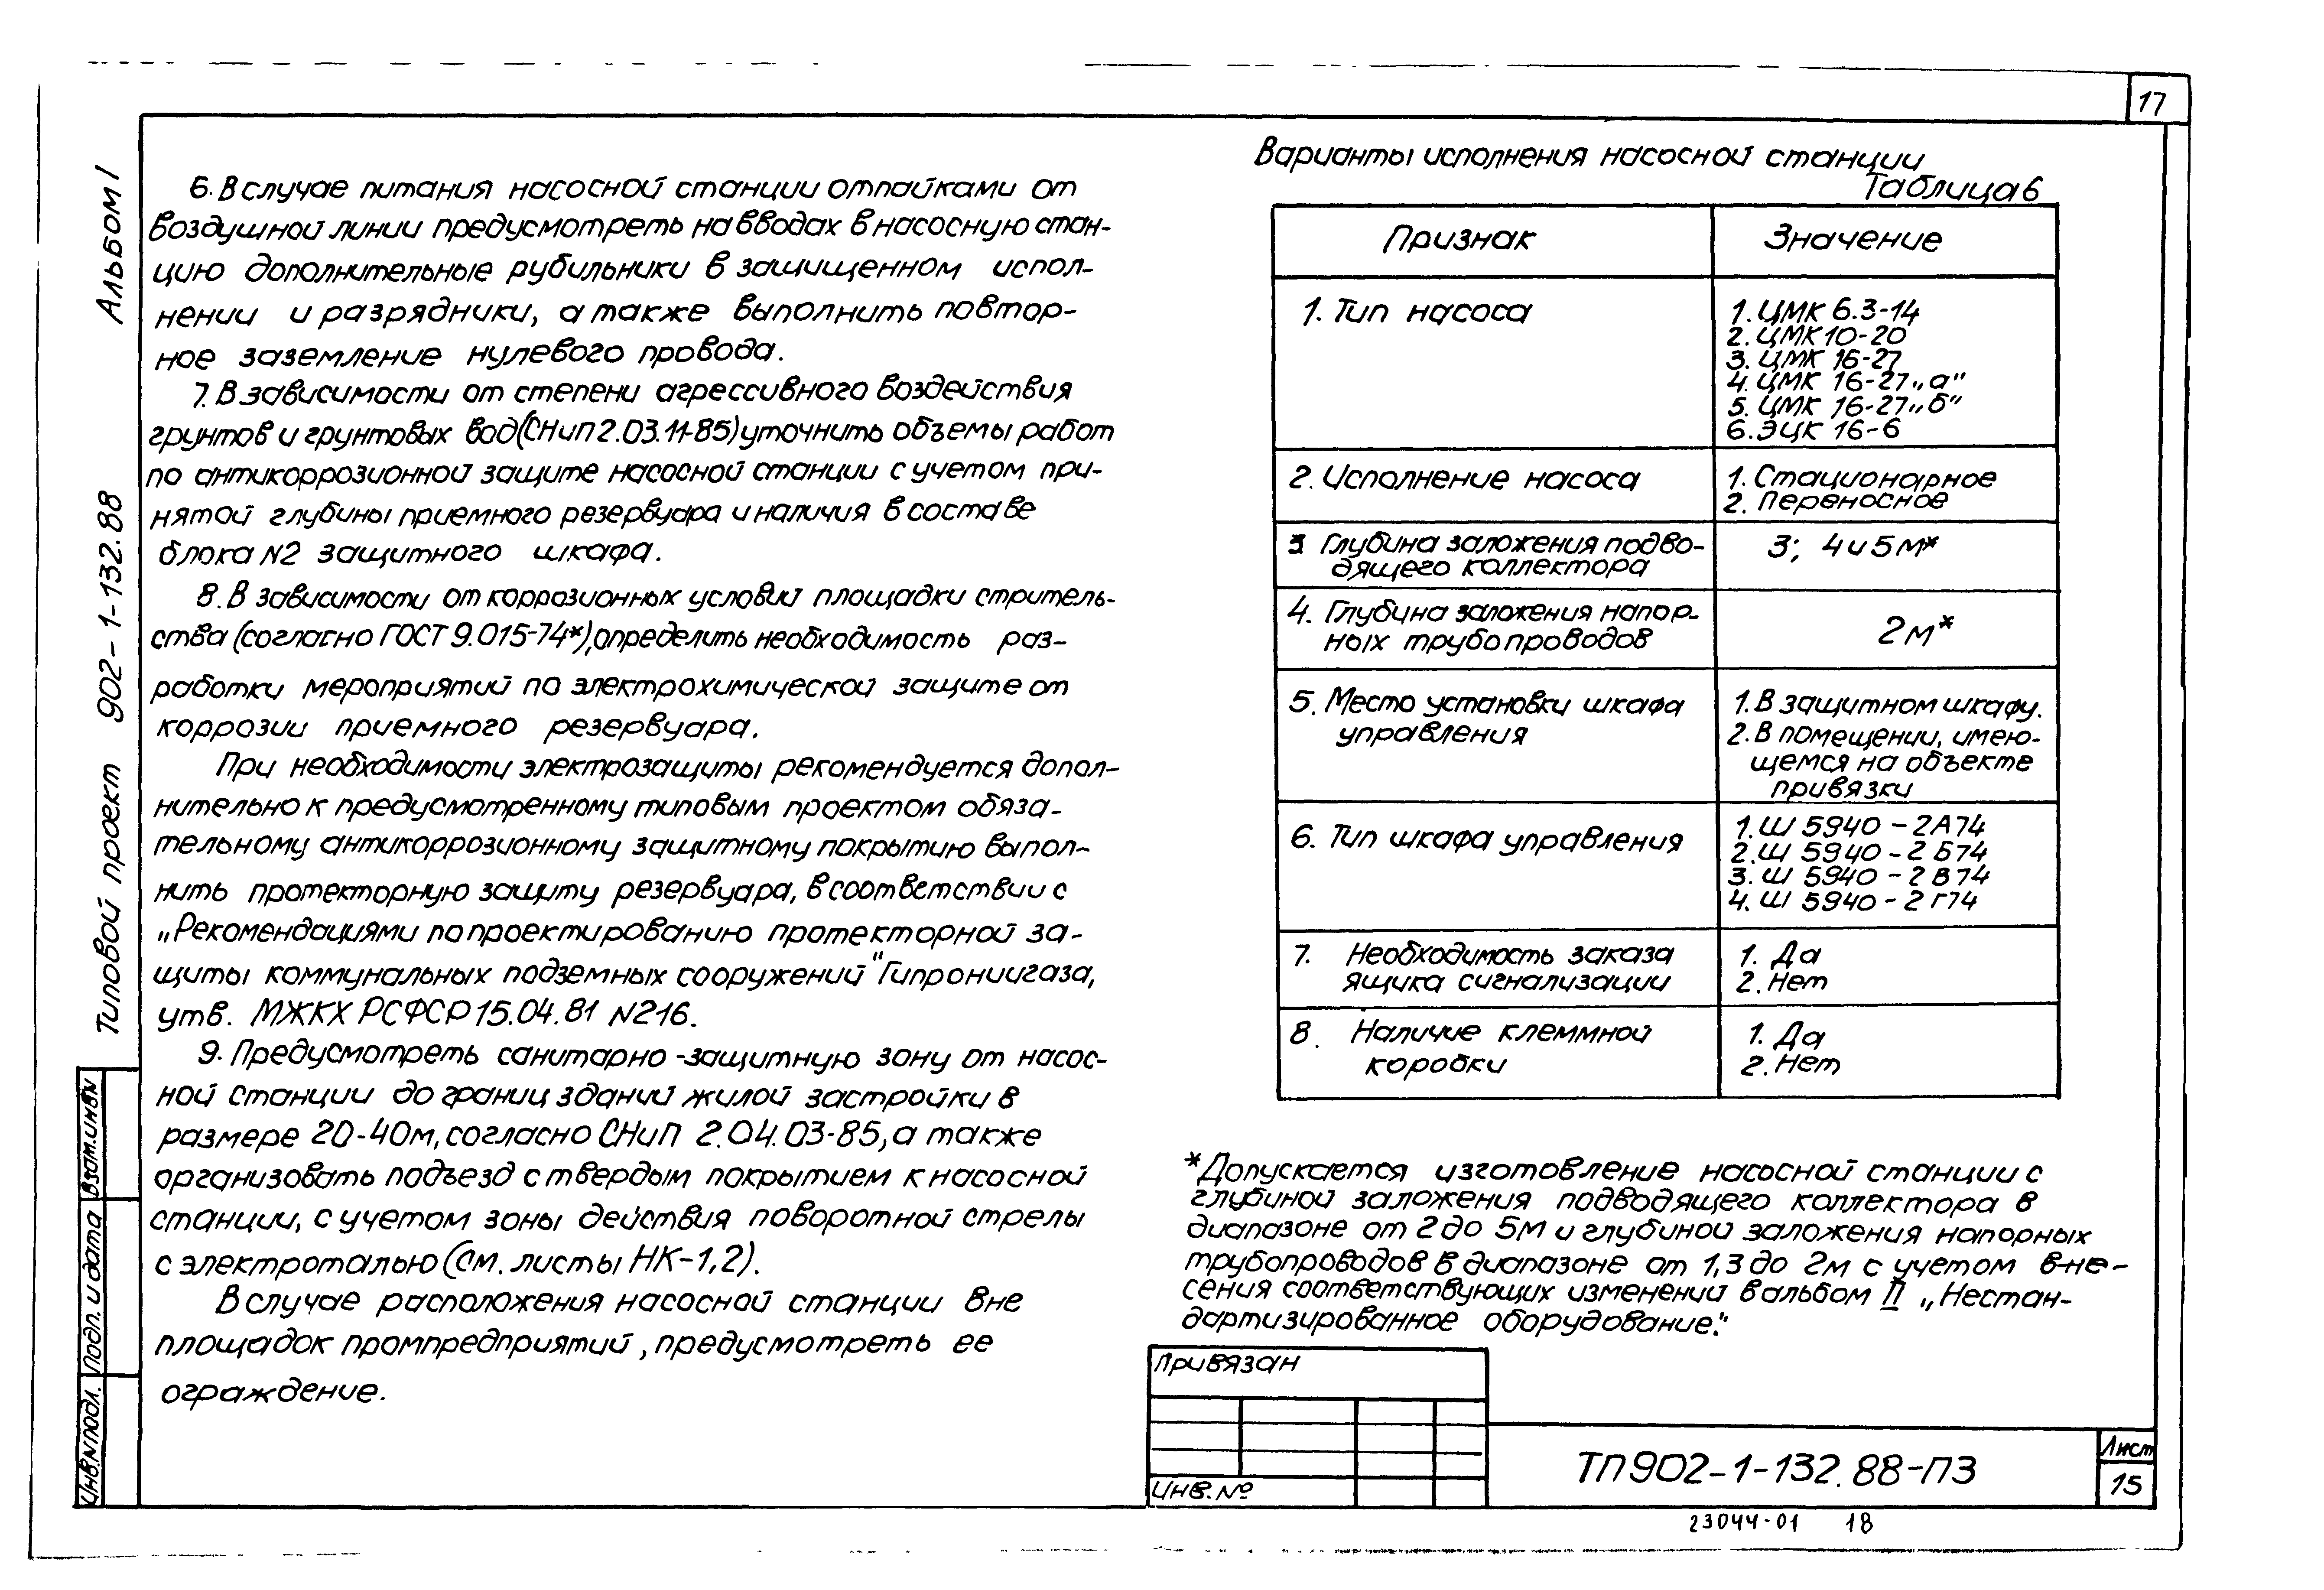 17
Альбом I
Типовой проект 902-1-132.88
6. В случае питания насосной станции отпайками от
воздушной линии предусмотреть на вводах в насосную стан-
цию дополнительные рубильники в защищенном испол-
нении и разрядники, а также выполнить повтор-
ное заземление нулевого провода.
7. В зависимости от степени агрессивного воздействия
грунтов и грунтовых вод (СНиП 2.03.11-85) уточнить объемы работ
по антикоррозионной защите насосной станции с учетом при-
нятой глубины приемного резервуара и наличия в составе
блока N2 защитного шкафа.
8. В зависимости от коррозионных условий площадки стритель-
ства (согласно ГОСТ 9.015-74*), определить необходимость раз-
работки мероприятий по электрохимической защите от
коррозии приемного резервуара.
При необходимости электрозащиты рекомендуется допол-
нительно к предусмотренному типовым проектом обяза-
тельному антикоррозионному защитному покрытию выпол-
нить протекторную защиту резервуара, в соответствии с
„Рекомендациями по проектированию протекторной за-
щиты коммунальных подземных сооружений" Гипрониигаза,
утв. МЖКХ РСФСР 15.04.81 N216.
9. Предусмотреть санитарно-защитную зону от насос-
ной станции до границ зданий жилой застройки в
размере 20-40м, согласно СНиП 2.04.03-85, а также
организовать подъезд с твердым покрытием к насосной
станции, с учетом зоны действия поворотной стрелы
с электроталью (см. листы НК-1,2).
В случае расположения насосной станции вне
площадок промпредприятий, предусмотреть ее
ограждение.
Варианты исполнения насосной станции
Таблица 6
Признак Значение
1. Тип насоса
1. ЦМК 6.3-14
2. ЦМК 10-20
3. ЦМК 16-27
4. ЦМК 16-27 „а"
5. ЦМК 16-27 „б"
6. ЭЦК 16-6
2. Исполнение насоса
1. Стационарное
2. Переносное
3 Глубина заложения подво-
дящего коллектора
3; 4 и 5м*
4. Глубина заложения напор-
ных трубопроводов
2м*
5. Место установки шкафа
управления
1. В защитном шкафу.
2. В помещении, имею-
щемся на объекте
привязки
6. Тип шкафа управления
1. Ш 5940-2А74
2. Ш 5940-2Б74
3. Ш 5940-2В74
4. Ш 5940-2Г74
7. Необходимость заказа
ящика сигнализации
1. Да
2. Нет
8. Наличие клеммной
коробки
1. Да
2. Нет
*Допускается изготовление насосной станции с
глубиной заложения подводящего коллектора в
диапазоне от 2 до 5м и глубиной заложения напорных
трубопроводов в диапазоне от 1,3 до 2м с учетом вне-
сения соответствующих изменений в альбом II „Нестан-
дартизированное оборудование."
Привязан
Инв. №
ТП902-1-132.88-ПЗ
Лист
15
Взам.инв.N
Подп. и дата
Инв.N подл.
23044-01 18